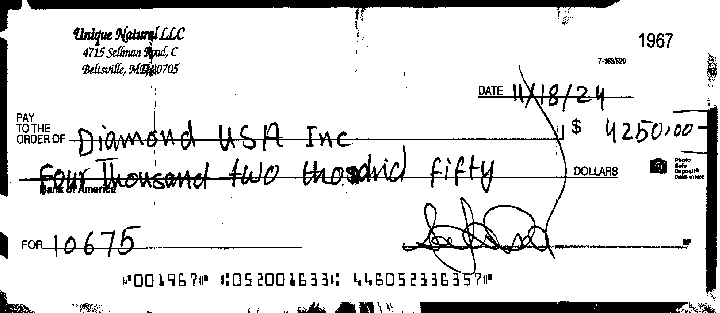 Unique Natural LLC
4715 Sellman Road, C
Beltsville, MD 20705
1967
7-163/520
DATE 11/18/24
PAY TO THE ORDER OF Diamond USA Inc $ 4250.00
Four Thousand two hundrid fifty DOLLARS
Photo Safe Deposit
Bank of America
FOR 10675
MP
⑈001967⑈ ⑆052001633⑆ 446052336357⑈